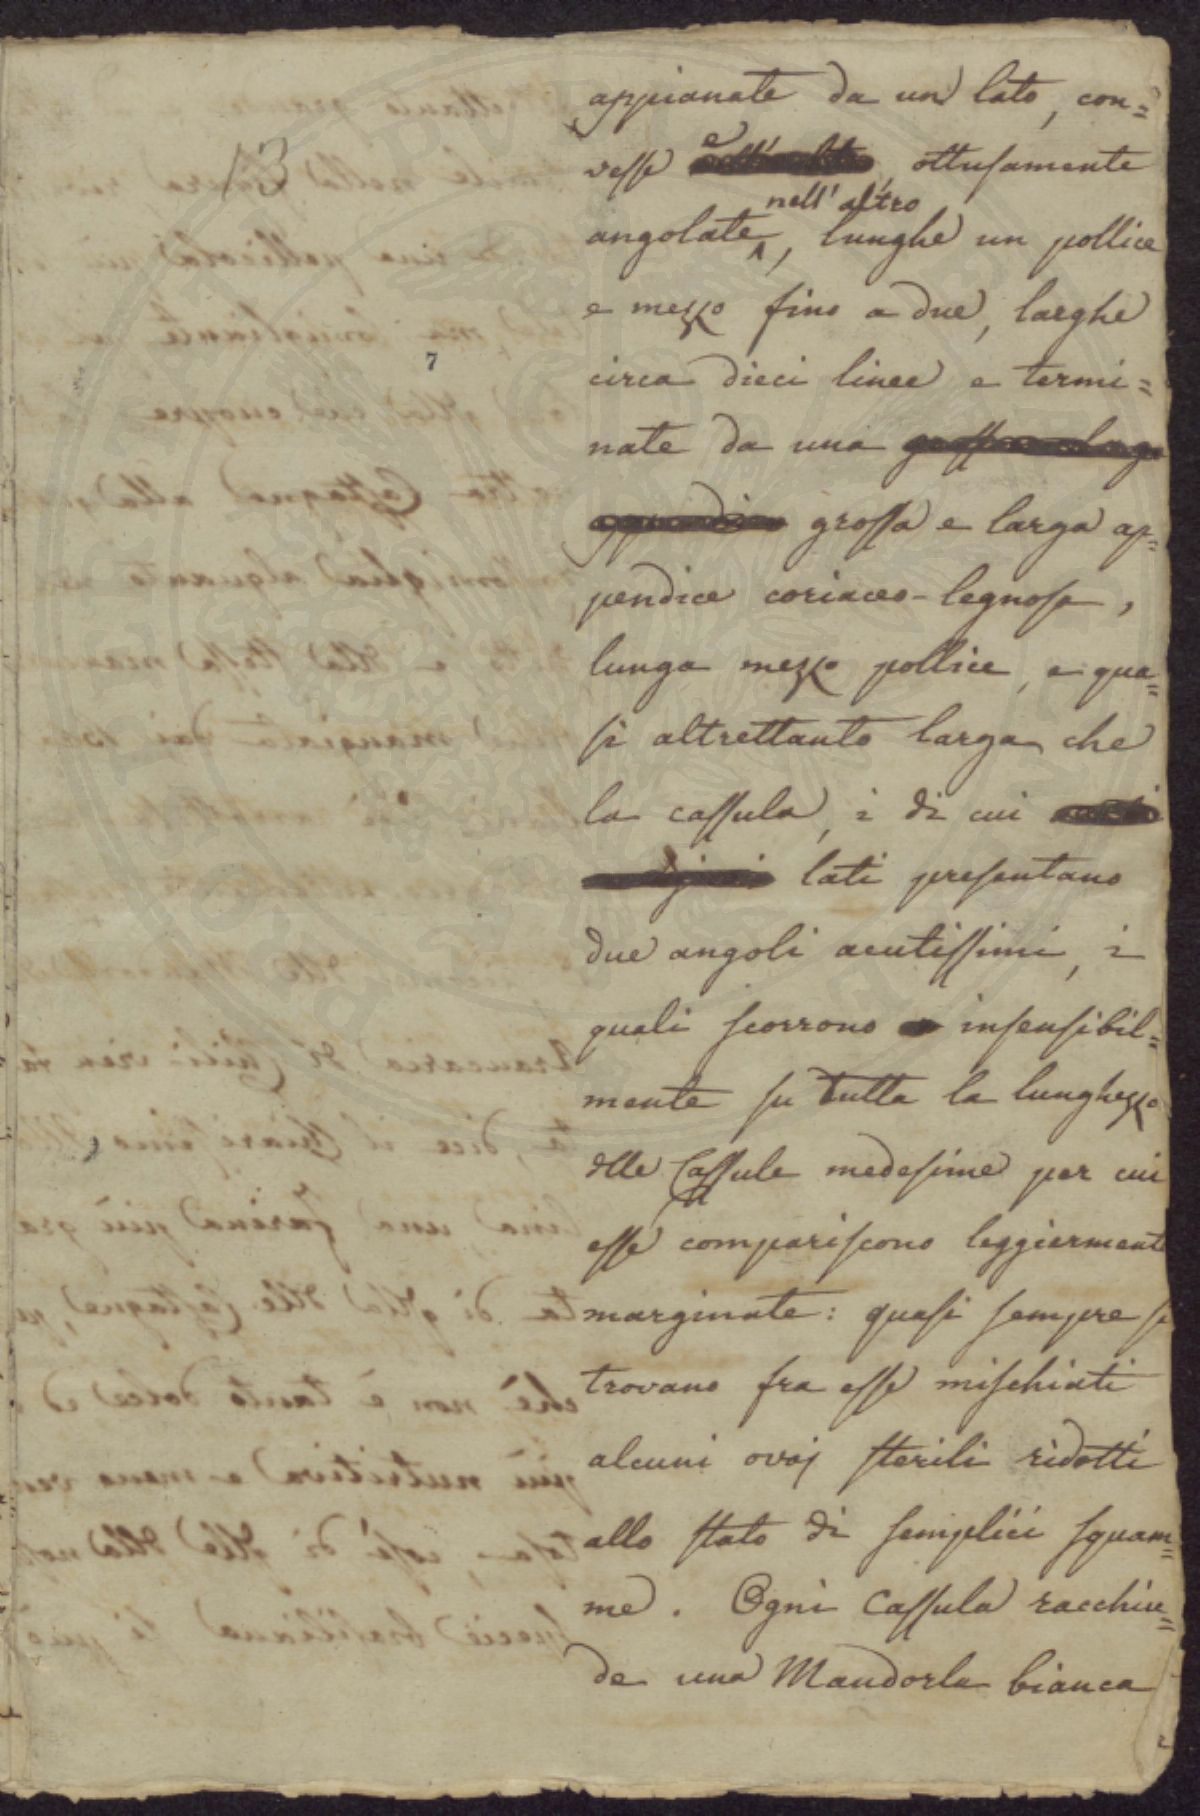 13
7
appianate da un lato, con=
vesse e ottusamente
nell'altro
angolate, lunghe un pollice
e mezzo fino a due, larghe
circa dieci linee e termi=
nate da una
grossa e larga ap=
pendice coriaceo-legnosa,
lunga mezzo pollice, e qua=
si altrettanto larga che
la cassula, i di cui
lati presentano
due angoli acutissimi, i
quali scorrono insensibil=
mente su tutta la lunghezza
delle Cassule medesime per cui
esse compariscono leggiermente
marginate: quasi sempre si
trovano fra esse mischiati
alcuni ovaj sterili ridotti
allo stato di semplici squam=
me. Ogni Cassula racchiu=
de una Mandorla bianca